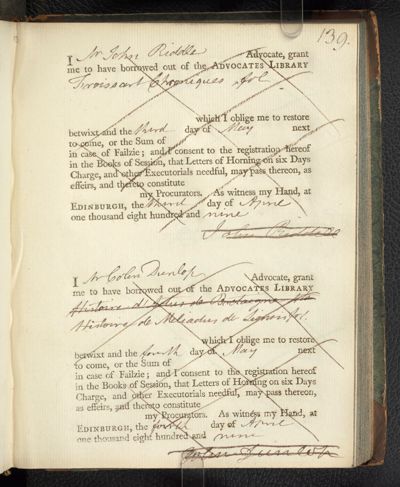 139.
I Mr John Riddell Advocate, grant
me to have borrowed out of the ADVOCATES LIBRARY
Froissart Chroniques fol.
which I oblige me to restore
betwixt and the third day of May next
to come, or the Sum of
in case of Failzie; and I consent to the registration hereof
in the Books of Session, that Letters of Horning on six Days
Charge, and other Executorials needful, may pass thereon, as
effeirs, and thereto constitute
my Procurators. As witness my Hand, at
EDINBURGH, the third day of April
one thousand eight hundred and nine
John Riddell
I Mr Colin Dunlop Advocate, grant
me to have borrowed out of the ADVOCATES LIBRARY
Histoire d'Artus de Bretaigne
Histoire de Meliadus de fol.
which I oblige me to restore
betwixt and the fourth day of May next
to come, or the Sum of
in case of Failzie; and I consent to the registration hereof
in the Books of Session, that Letters of Horning on six Days
Charge, and other Executorials needful, may pass thereon,
as effeirs, and thereto constitute
my Procurators. As witness my Hand, at
EDINBURGH, the fourth day of April
one thousand eight hundred and nine
Colin Dunlop